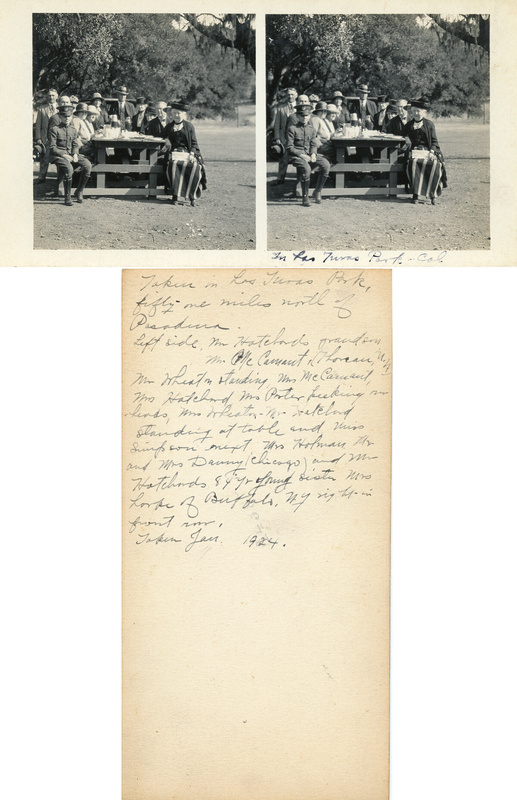 In Las Turas Park - Cal
Taken in Las Turas Park,
fifty-one miles north of
Pasadena.
Left side, Mr Hatchards grandson
Mr McCarrant,
Mr Wheaton standing, Mrs McCarrant,
Mrs Hatchard, Mrs Porter peeking in
heads, Mrs Wheaton - Mr Hatchard
standing at table and Mrs
Simpson next, Mrs Holman Mr
and Mrs Danny (Chicago) and Mr
Hatchards 84 yr young sister Mrs
of Buffalo, NY right in
front row.
Taken Jan. 1924.